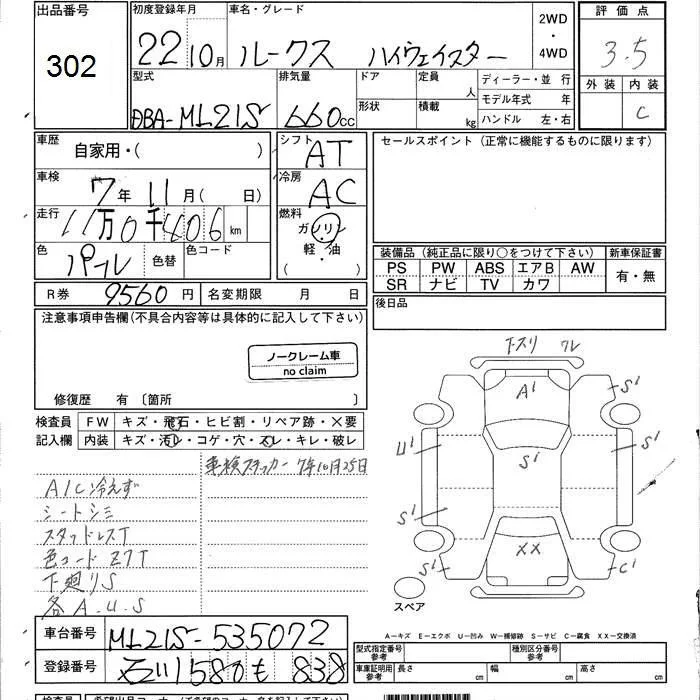 出品番号
302
初度登録年月
22 10月
車名・グレード
ルークス ハイウェイスター
2WD
・
4WD
評価点
3.5
外装 内装
C
型式
DBA-ML21S
排気量
660cc
ドア
形状
定員
人
積載
kg
ディーラー・並 行
モデル年式 年
ハンドル 左・右
車歴
自家用・( )
シフト
AT
車検
7年 11月( 日)
冷房
AC
走行
11万0千406km
燃料
ガソリン
軽・油
( )
色
パール
色替
色コード
R券 9560円
名変期限 月 日
セールスポイント (正常に機能するものに限ります)
装備品 (純正品に限り○をつけて下さい)
新車保証書
PS PW ABS エアB AW
SR ナビ TV カワ
有・無
後日品
注意事項申告欄(不具合内容等は具体的に記入して下さい)
ノークレーム車
no claim
修復歴 有 〔箇所 〕
検査員
記入欄
FW キズ・飛石・ヒビ割・リペア跡・×要
内装 キズ・汚レ・コゲ・穴・スレ・キレ・破レ
車検ステッカー 7年10月25日
A/C冷えず
シートシミ
スタッドレスT
色コード Z7T
下廻りS
各A.U.S
下スリ ワレ
A1
S1
U1
S1
S1
S1
XX
S1
C1
スペア
A-キズ E-エクボ U-凹み W-補修跡 S-サビ C-腐食 XX-交換済
車台番号
ML21S-535072
登録番号
石川 580 も 838
型式指定番号
参考
種別区分番号
参考
車庫証明用
参考
長さ cm
幅 cm
高さ cm